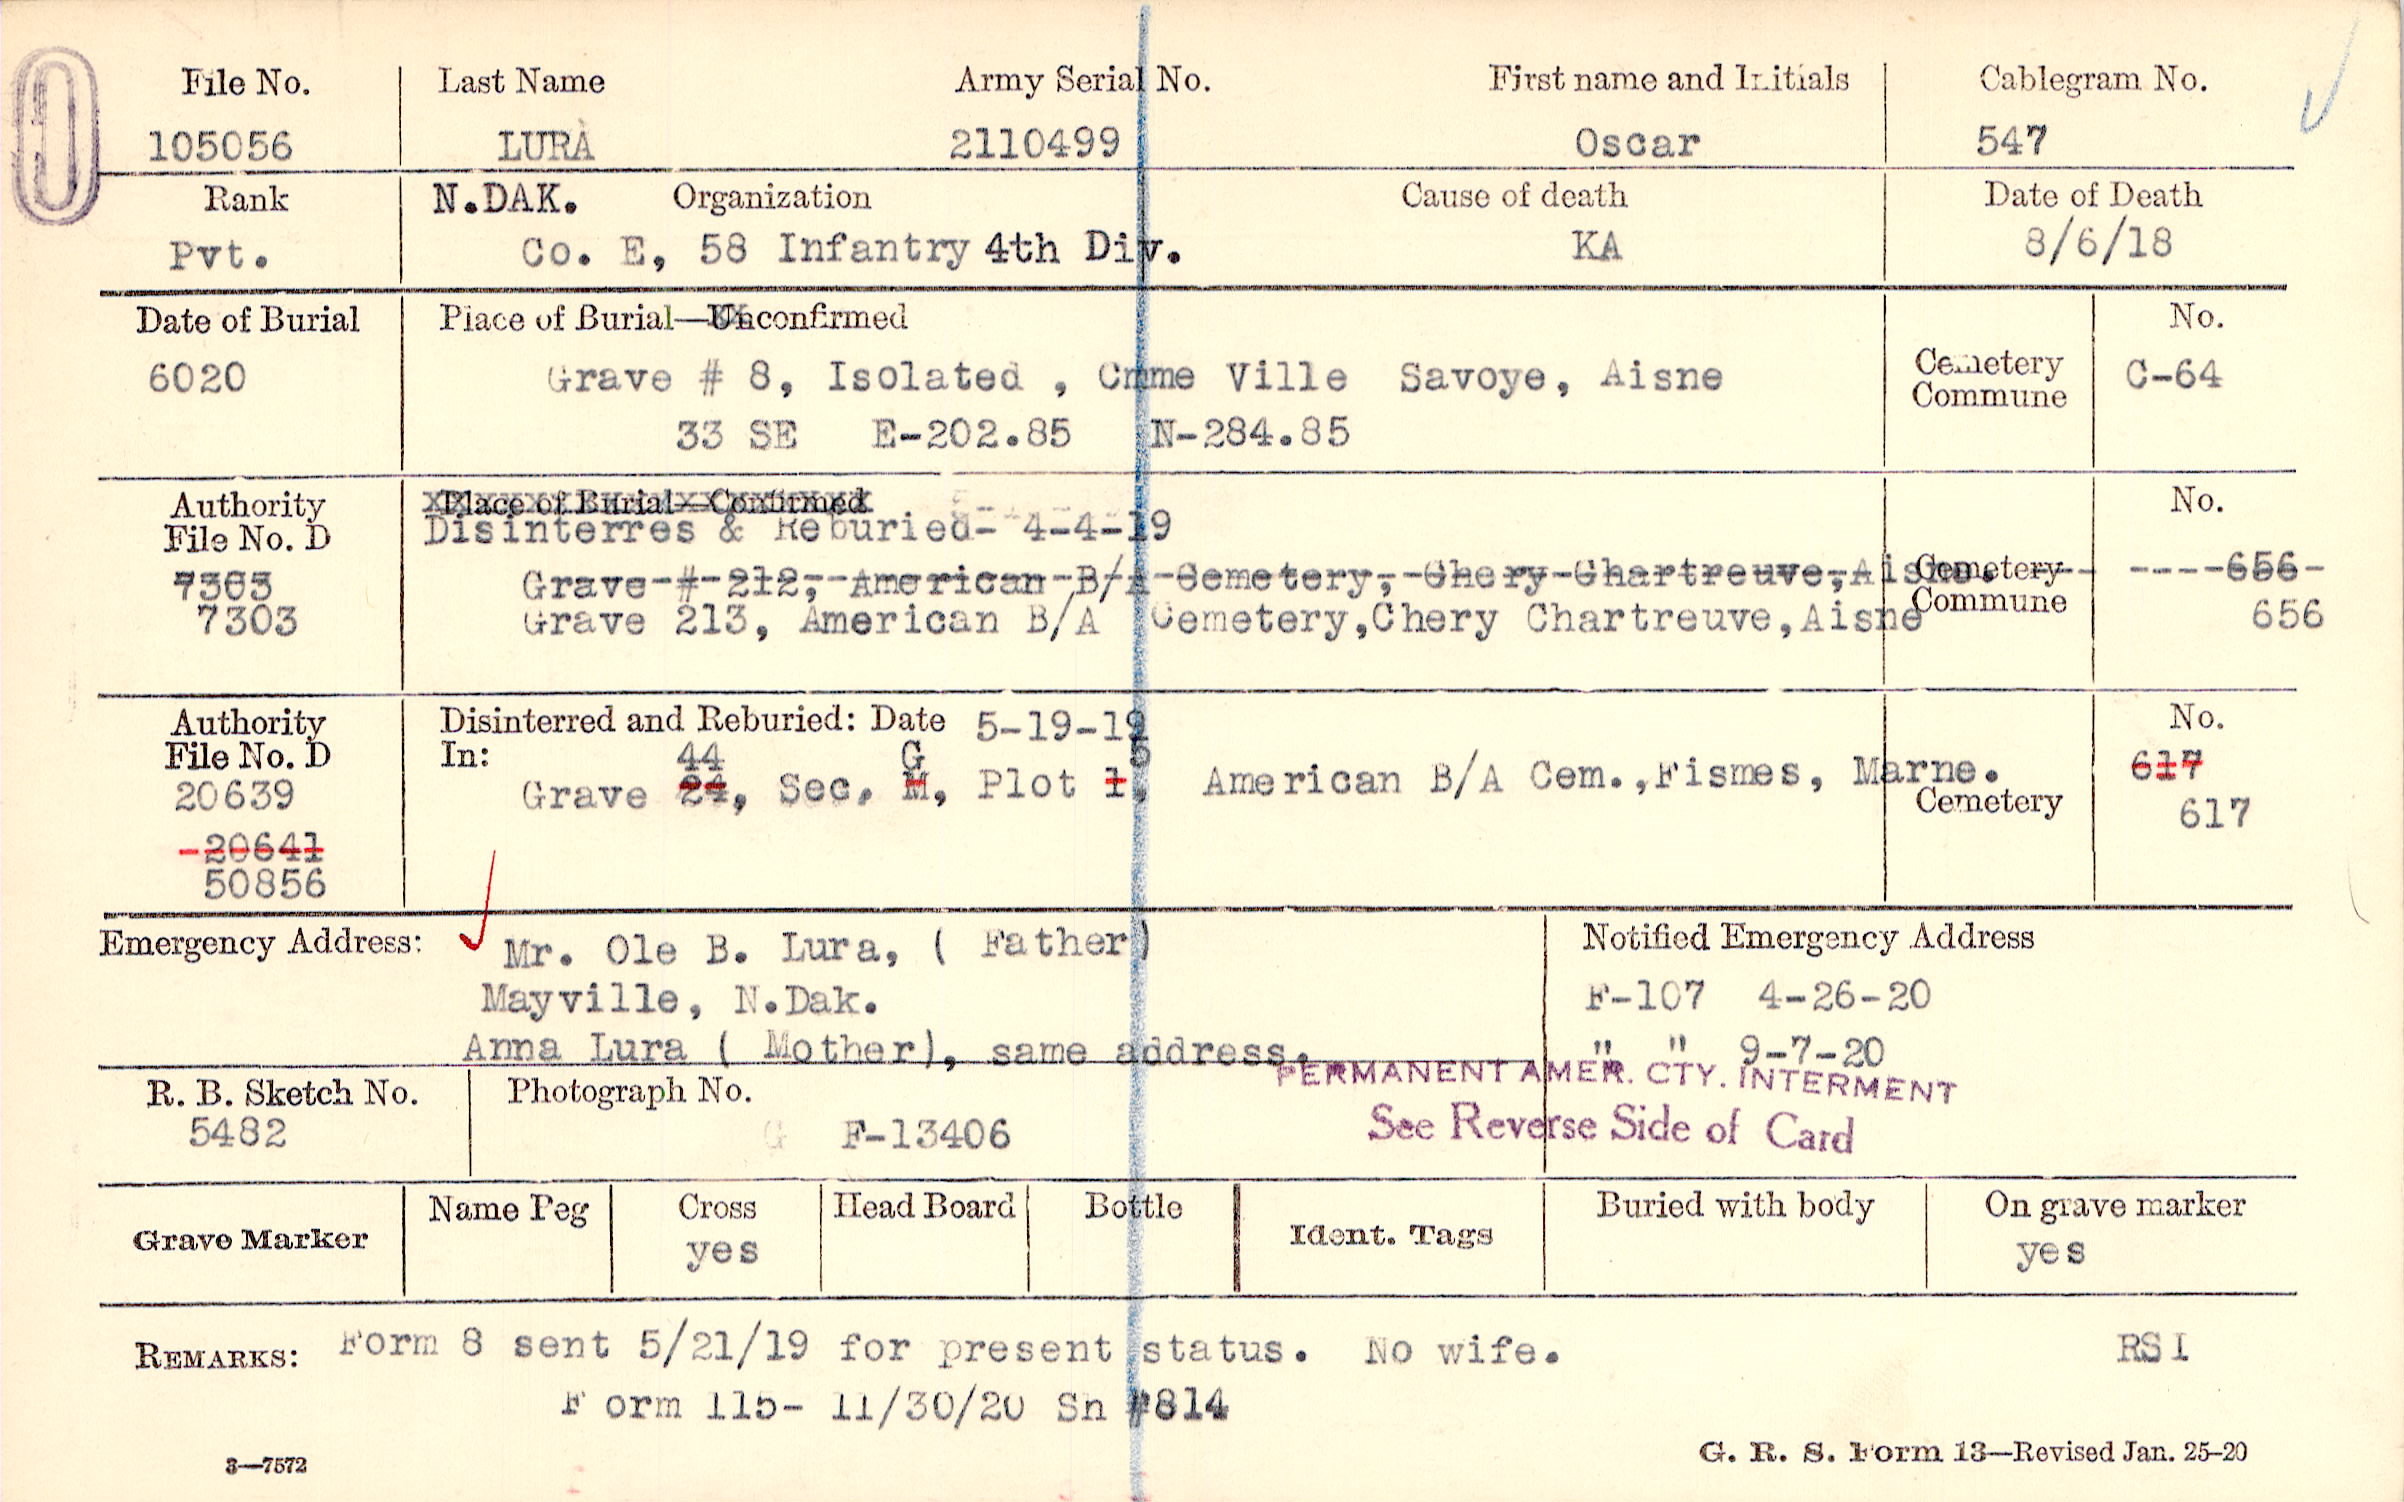 File No. Last Name Army Serial No. First name and Initials Cablegram No.
105056 LURA 2110499 Oscar 547
Rank N.DAK. Organization Cause of death Date of Death
Pvt. Co. E, 58 Infantry 4th Div. KA 8/6/18
Date of Burial Place of Burial—Unconfirmed No.
6020 Grave # 8, Isolated , Cmme Ville Savoye, Aisne Cemetery Commune C-64
33 SE E-202.85 N-284.85
Authority Place of Burial—Confirmed No.
File No. D Disinterres & Reburied- 4-4-19
7303 Grave-#-212,-American-B/A-Cemetery,-Chery-Chartreuve,Aisne. Cemetery ----656-
7303 Grave 213, American B/A Cemetery,Chery Chartreuve,Aisne Commune 656
Authority Disinterred and Reburied: Date 5-19-19 No.
File No. D In: 44 G 5
20639 Grave 24, Sec. M, Plot 1, American B/A Cem.,Fismes, Marne. 617
Cemetery 617
-20641
50856
Emergency Address: Mr. Ole B. Lura, ( Father) Notified Emergency Address
Mayville, N.Dak. F-107 4-26-20
Anna Lura ( Mother), same address. " " 9-7-20
PERMANENT AMER. CTY. INTERMENT
R. B. Sketch No. Photograph No. See Reverse Side of Card
5482 G F-13406
Grave Marker Name Peg Cross Head Board Bottle Ident. Tags Buried with body On grave marker
yes yes
REMARKS: Form 8 sent 5/21/19 for present status. No wife. RSI
Form 115- 11/30/20 Sn #814
3—7572 G. R. S. Form 13—Revised Jan. 25-20